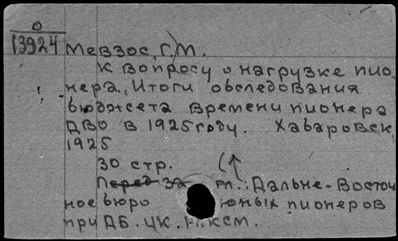 О
13924 Мевзос, Г.М.
К вопросу о нагрузке пио-
нера, Итоги обследования
бюджета времени пионера
ДВО в 1925 году. Хабаровск,
1925
30 стр.
Перед заг. т.: Дальне-Восточ
ное бюро юных пионеров
при ДБ. ЦК.